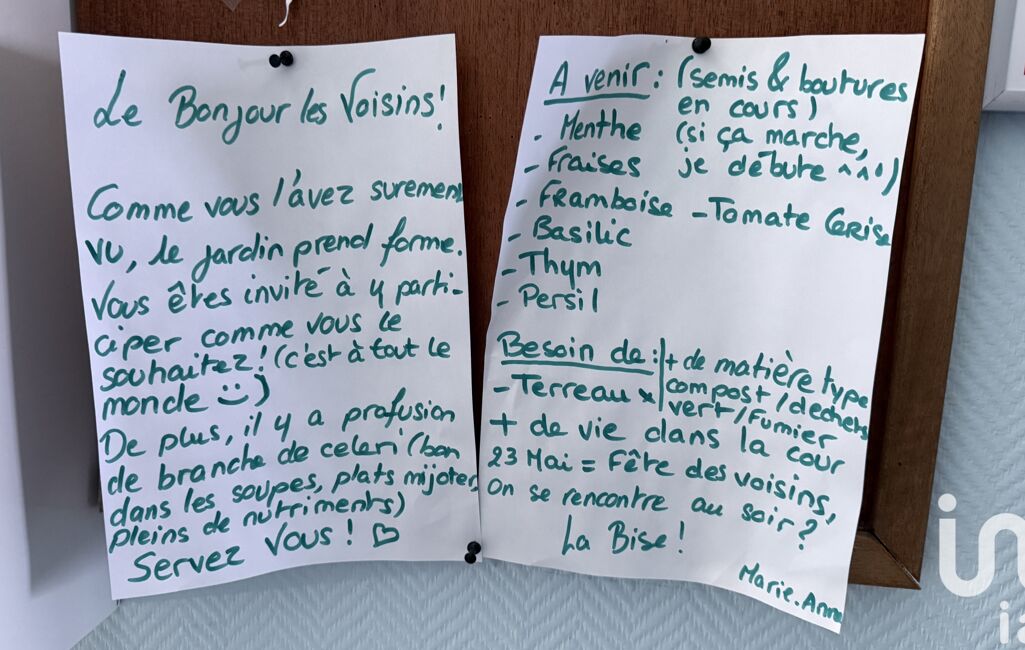 Le Bonjour les Voisins!
Comme vous l'avez surement
vu, le jardin prend forme.
Vous êtes invité à y parti-
ciper comme vous le
souhaitez! (c'est à tout le
monde :))
De plus, il y a profusion
de branche de celeri (bon
dans les soupes, plats mijotés,
pleins de nutriments)
Servez Vous! ♡
A venir: (semis & boutures
en cours)
- Menthe (si ça marche,
- Fraises je débute ^^')
- Framboise - Tomate Cerise
- Basilic
- Thym
- Persil
Besoin de: + de matière type
- Terreau x compost / dechets
vert / Fumier
+ de vie dans la cour
23 Mai = Fête des voisins,
on se rencontre au soir?
La Bise!
Marie-Anne